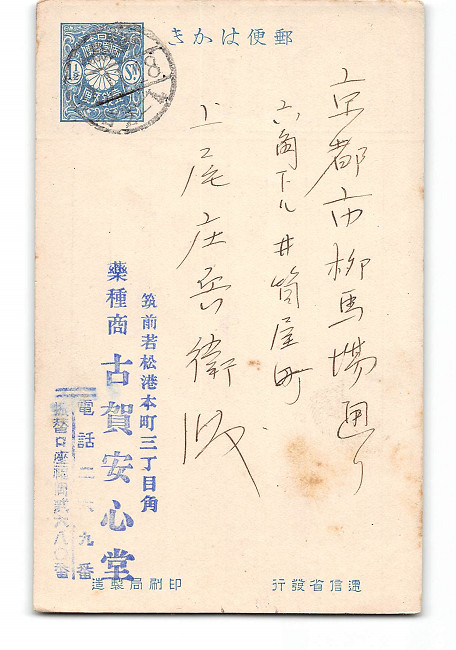 郵便はかき
1½ Sn.
京都市柳馬場通り
六角下ル井筒屋町
上尾庄兵衛殿
筑前若松港本町三丁目角
藥種商 古賀安心堂
電話二六九番
振替口座福岡貳六八〇番
遞信省發行
印刷局製造